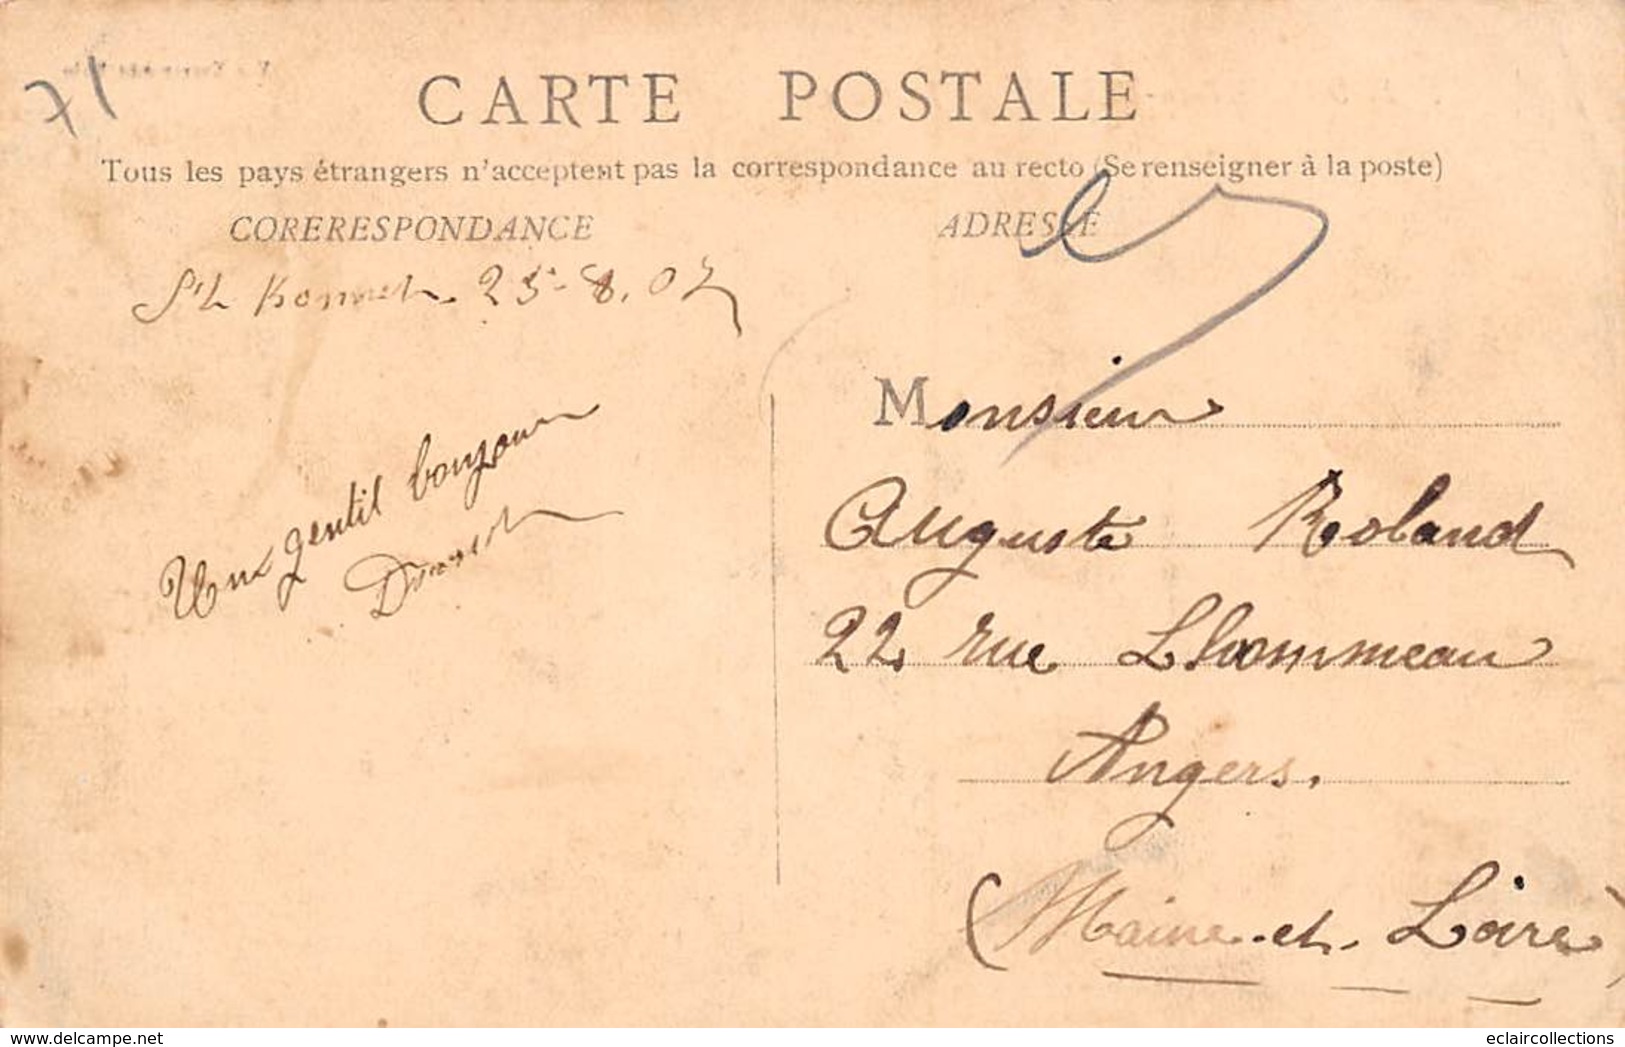 71
CARTE POSTALE
Tous les pays étrangers n'acceptent pas la correspondance au recto (Se renseigner à la poste)
CORERESPONDANCE
ADRESSE
St Bonnet 25-8.07
Un gentil bonjour
Monsieur
Auguste Roland
22 rue Lhommeau
Angers.
(Maine-et-Loire)
www.delcampe.net
eclaircollections